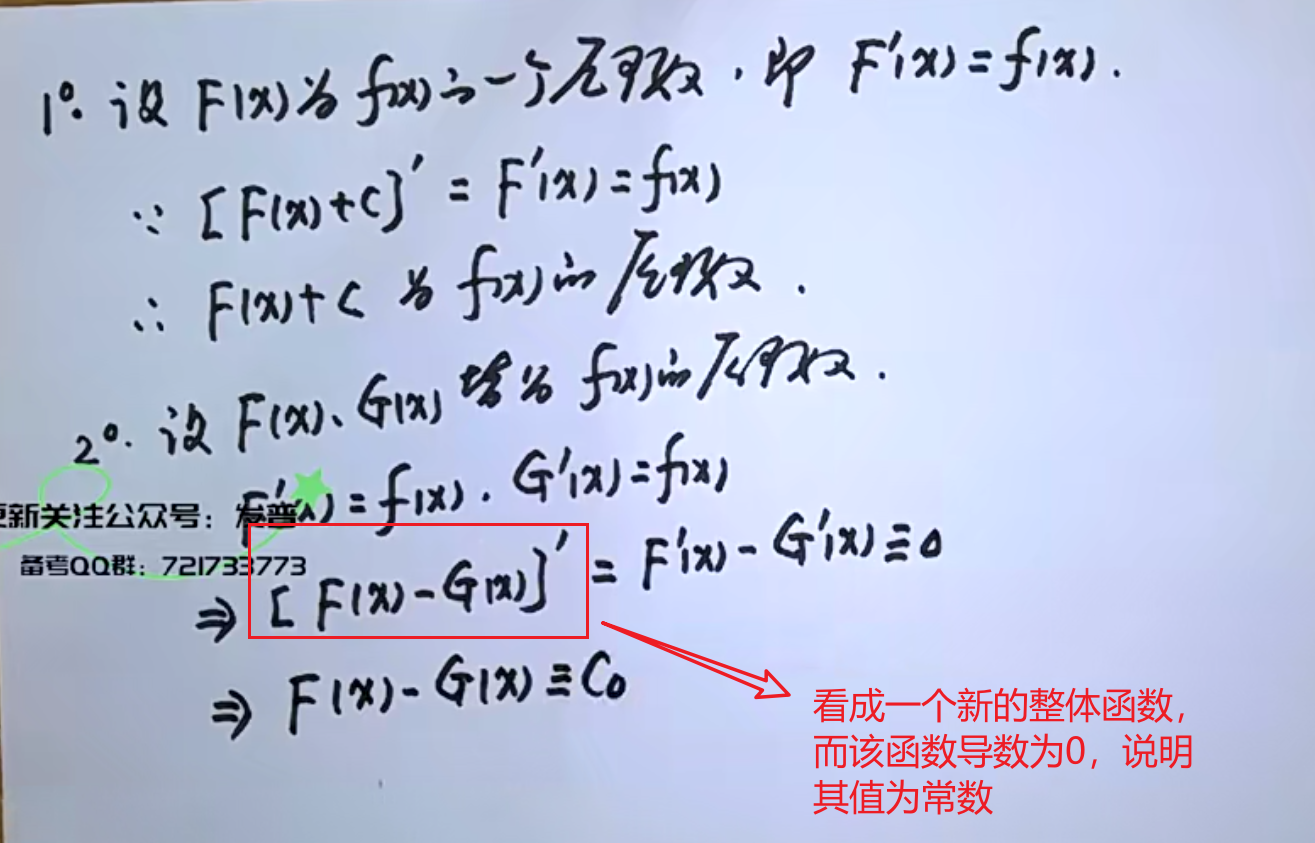 1°. 设 F(x)为 f(x)的一个原函数, 即 F'(x)=f(x).
∵ [F(x)+C]' = F'(x)=f(x)
∴ F(x)+C 为 f(x)的原函数.
2°. 设 F(x)、G(x) 皆为 f(x)的原函数.
F'(x)=f(x). G'(x)=f(x)
更新关注公众号：发普人
备考QQ群：721733773
⇒ [F(x)-G(x)]' = F'(x)-G'(x)≡0
⇒ F(x)-G(x)≡C₀
看成一个新的整体函数，
而该函数导数为0，说明
其值为常数